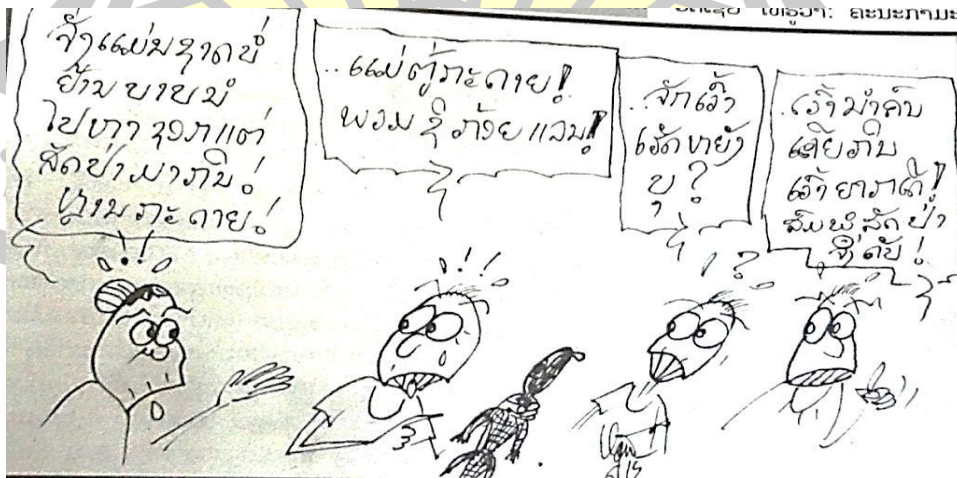 ຈັ່ງແມ່ນຊາດບໍ່
ຢ້ານບາບນໍ
ໄປຫາ ຈອກແຕ່
ສັດປ່າມາກິນ!
ຫຼານກະດາຍ!
..ແມ່ຕູ້ກະດາຍ!
ພວມ ຊິ ກ້ອຍ ແລນ!
..ຈັກເຈົ້າ
ເຮັດຫຍັງ
ບຸ ?
ເຈົ້ານຳຄົນ
ເຄີຍກິນ
ເຈົ້າຍາກເດ້!
ສົມພໍສັດປ່າ
ຈຶ່ງດັບ!